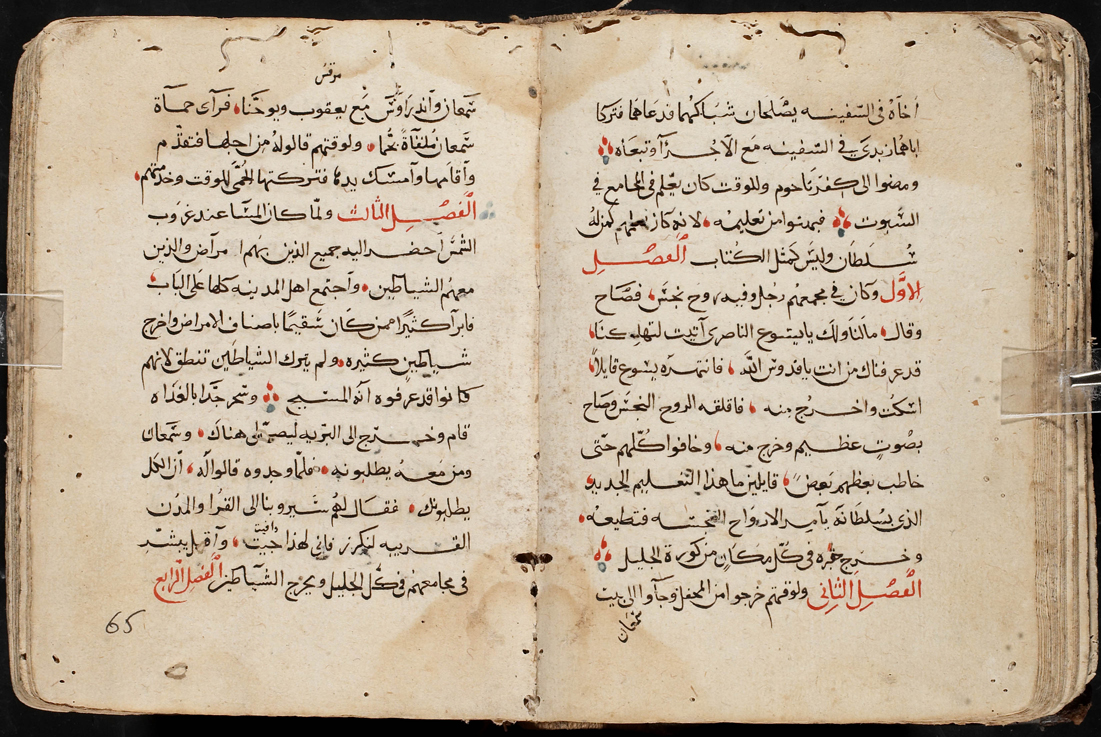 اخاه في السفينه يصلحان شباكهما فدعاهما فتركا
اباهما زبدي في السفينه مع الآجرآ وتبعاه
ومضوا الى كفرناحوم وللوقت كان يعلم في المجامع في
السبوت فبهتوا من تعليمه لانه كان يعلمهم كمن له
سلطان وليس كمثل الكتاب الفصل
الاول وكان في مجمعهم رجل وفيه روح نجس فصاح
وقال مالنا ولك يا يسوع الناصري آتيت لتهلكنا
قد عرفناك من انت يا قدوس الله فانتهره يسوع قايلاً
اسكت واخرج منه فاقلقه الروح النجس وصاح
بصوت عظيم وخرج منه وخافوا كلهم حتى
خاطب بعظهم بعض قايلين ما هذا التعليم الجديد
الذي بسلطانه يآمر الارواح النجسه فتطيعه
وخرج خبره في كل مكان من كورة الجليل
الفصل الثاني ولوقتهم خرجوا من المحفل وجآوا الى بيت
سمعان
مرقس
سمعان واندراوس مع يعقوب ويوحنا فرآى حماة
سمعان ملقاةً بحما ولوقتهم قالوا له من اجلها فتقدم
وآقامها وآمسك يدها فتركتها الحمى للوقت وخدمتهم
الفصل الثالث ولما كان المسا عند غروب
الشمس احضر اليه جميع الذين بهم امراض والذين
معهم الشياطين وآجتمع اهل المدينه كلها على الباب
فابرآ كثيرا ممن كان سقيمًا باصناف الامراض واخرج
شياطين كثيره ولم يترك الشياطين تنطق لانهم
كانوا قد عرفوه انه المسيح وسحر جدا بالغداه
قام وخرج الى البريه ليصلي هناك وسمعان
ومن معه يطلبونه فلما وجدوه قالوا له ان الكل
يطلبونك فقال لهم سيروا بنا الى القرا والمدن
القريبه لنكرز فاني لهذا جيت وآقبل يبشر
في مجامعهم في كل الجليل ويخرج الشياطين الفصل الرابع
65